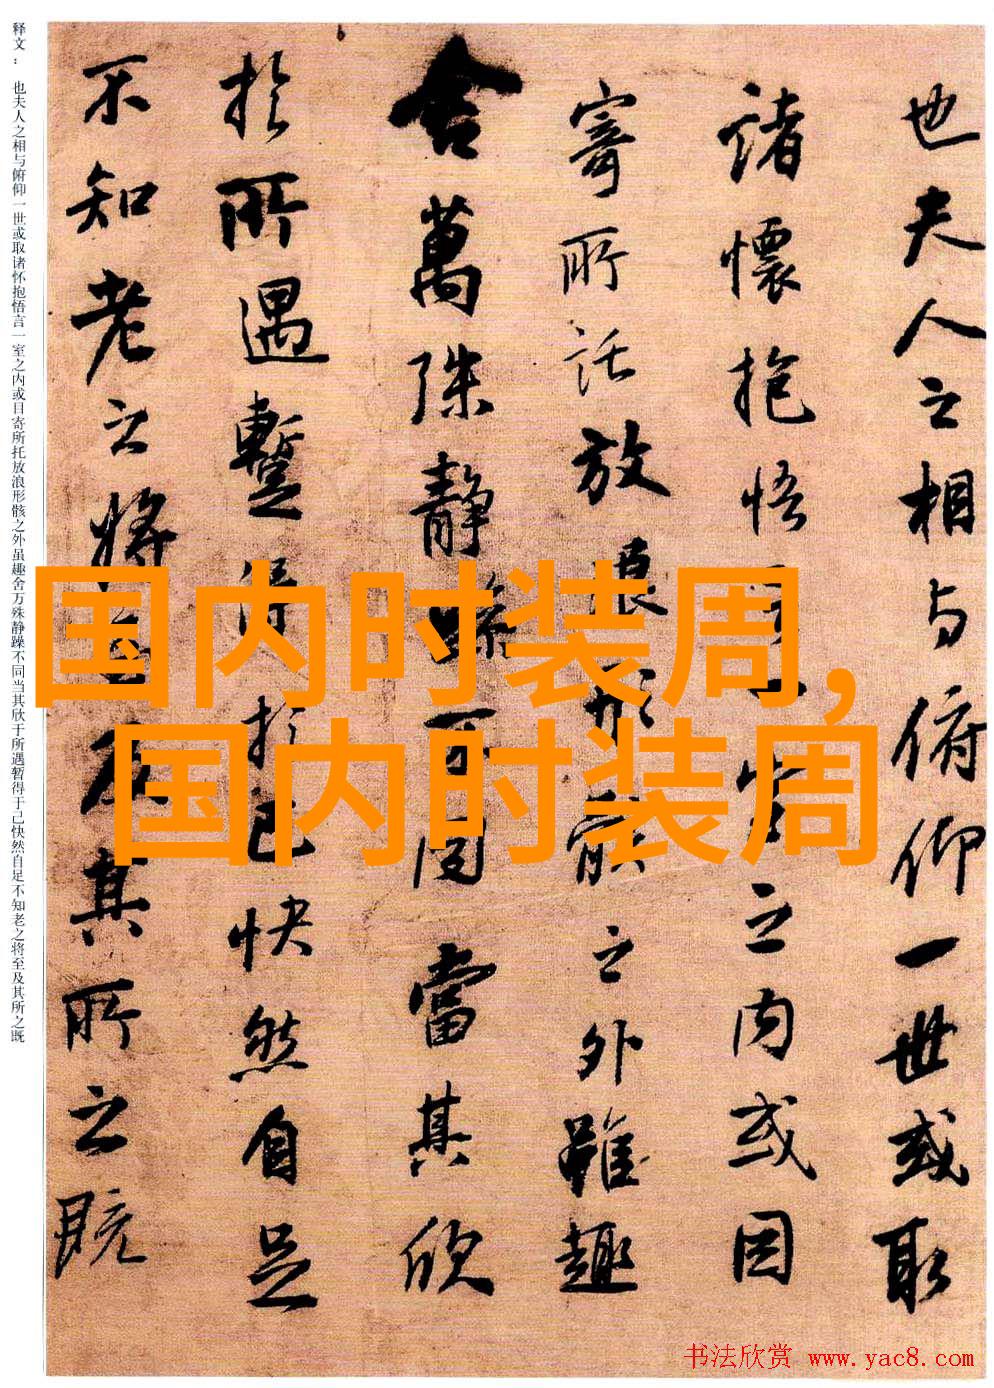 也夫人之相与俯仰一世或取
諸懷抱悟言一室之内或因
寄所託放浪形骸之外雖趣
舍萬殊静躁不同當其欣
於所遇暫得於己快然自足
不知老之將至及其所之既
释文：也夫人之相与俯仰一世或取诸怀抱悟言一室之内或目寄所托放浪形骸之外虽趣舍万殊静躁不同当其欣于所遇暂得于己快然自足不知老之将至及其所之既
国内时装周,
国内时装周
书法欣赏 www.yac8.com